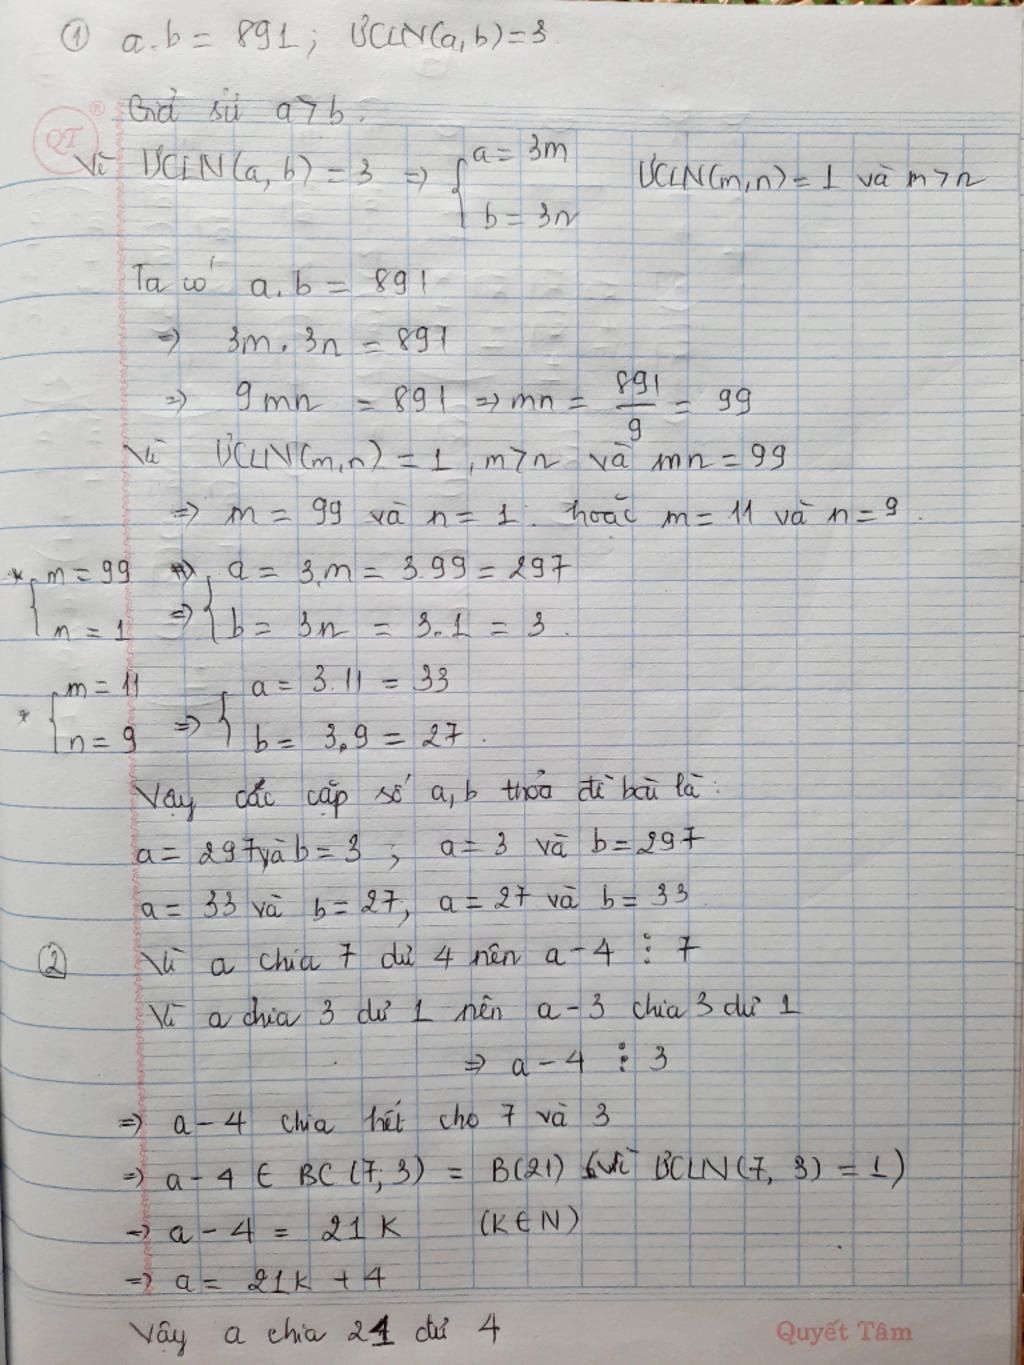 ① a.b = 891; ƯCLN(a,b)=3
Giả sử a>b.
QT ®
Vì ƯCLN(a,b) = 3 => { a = 3m ƯCLN(m,n) = 1 và m>n
b = 3n
Ta có a.b = 891
=> 3m.3n = 891
=> 9mn = 891 => mn = 891/9 = 99
Vì ƯCLN(m,n) = 1, m>n và mn = 99
=> m = 99 và n = 1. hoặc m = 11 và n = 9.
* { m = 99 => { a = 3.m = 3.99 = 297
n = 1 => b = 3n = 3.1 = 3.
* { m = 11 => { a = 3.11 = 33
n = 9 b = 3.9 = 27.
Vậy các cặp số a,b thỏa đề bài là:
a = 297 và b = 3; a = 3 và b = 297
a = 33 và b = 27; a = 27 và b = 33
② Vì a chia 7 dư 4 nên a - 4 ⋮ 7
Vì a chia 3 dư 1 nên a - 3 chia 3 dư 1
=> a - 4 ⋮ 3
=> a - 4 chia hết cho 7 và 3
=> a - 4 ∈ BC(7; 3) = B(21) (vì ƯCLN(7, 3) = 1)
=> a - 4 = 21K (K∈N)
=> a = 21K + 4
Vậy a chia 21 dư 4
Quyết Tâm